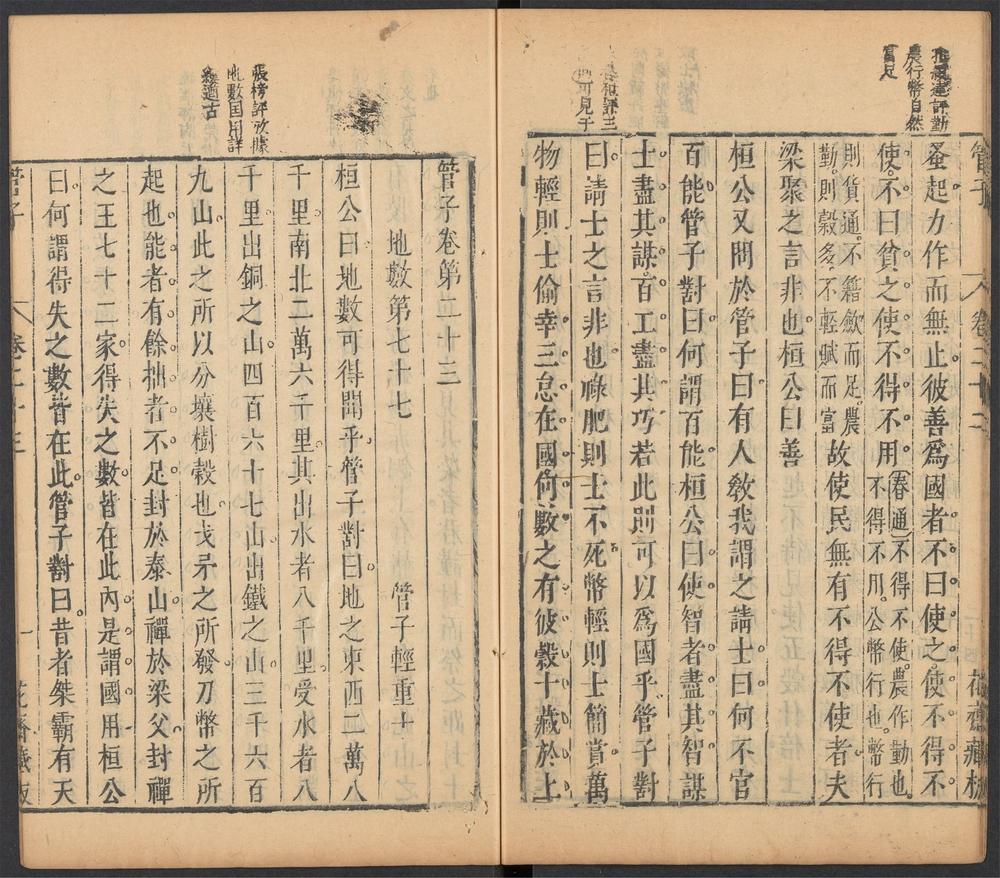 管子
卷二十二
花齋藏板
農行幣自然
富足
蚤起力作而無止彼善爲國者不曰使之使不得不
使不曰貧之使不得不用
春通不得不使農作勤也
不得不用公幣行也幣行
則貨通不籍歛而足農
勤則榖多不輕賦而富
故使民無有不得不使者夫
梁聚之言非也桓公曰善
桓公又問於管子曰有人敎我謂之請士曰何不官
百能管子對曰何謂百能桓公曰使智者盡其智謀
士盡其謀百工盡其巧若此則可以爲國乎管子對
曰請士之言非也祿肥則士不死幣輕則士簡賞萬
物輕則士偷幸三怠在國何數之有彼穀十藏於上
張榜評攷據
地數国用詳
管子卷第二十三
地數第七十七
管子輕重十
桓公曰地數可得聞乎管子對曰地之東西二萬八
千里南北二萬六千里其出水者八千里受水者八
千里出銅之山四百六十七山出鐵之山三千六百
九山此之所以分壤樹穀也戈矛之所發刀幣之所
起也能者有餘拙者不足封於泰山禪於梁父封禪
之王七十二家得失之數皆在此內是謂國用桓公
曰何謂得失之數皆在此管子對曰昔者桀霸有天
管子
卷二十三
一
花齋藏板